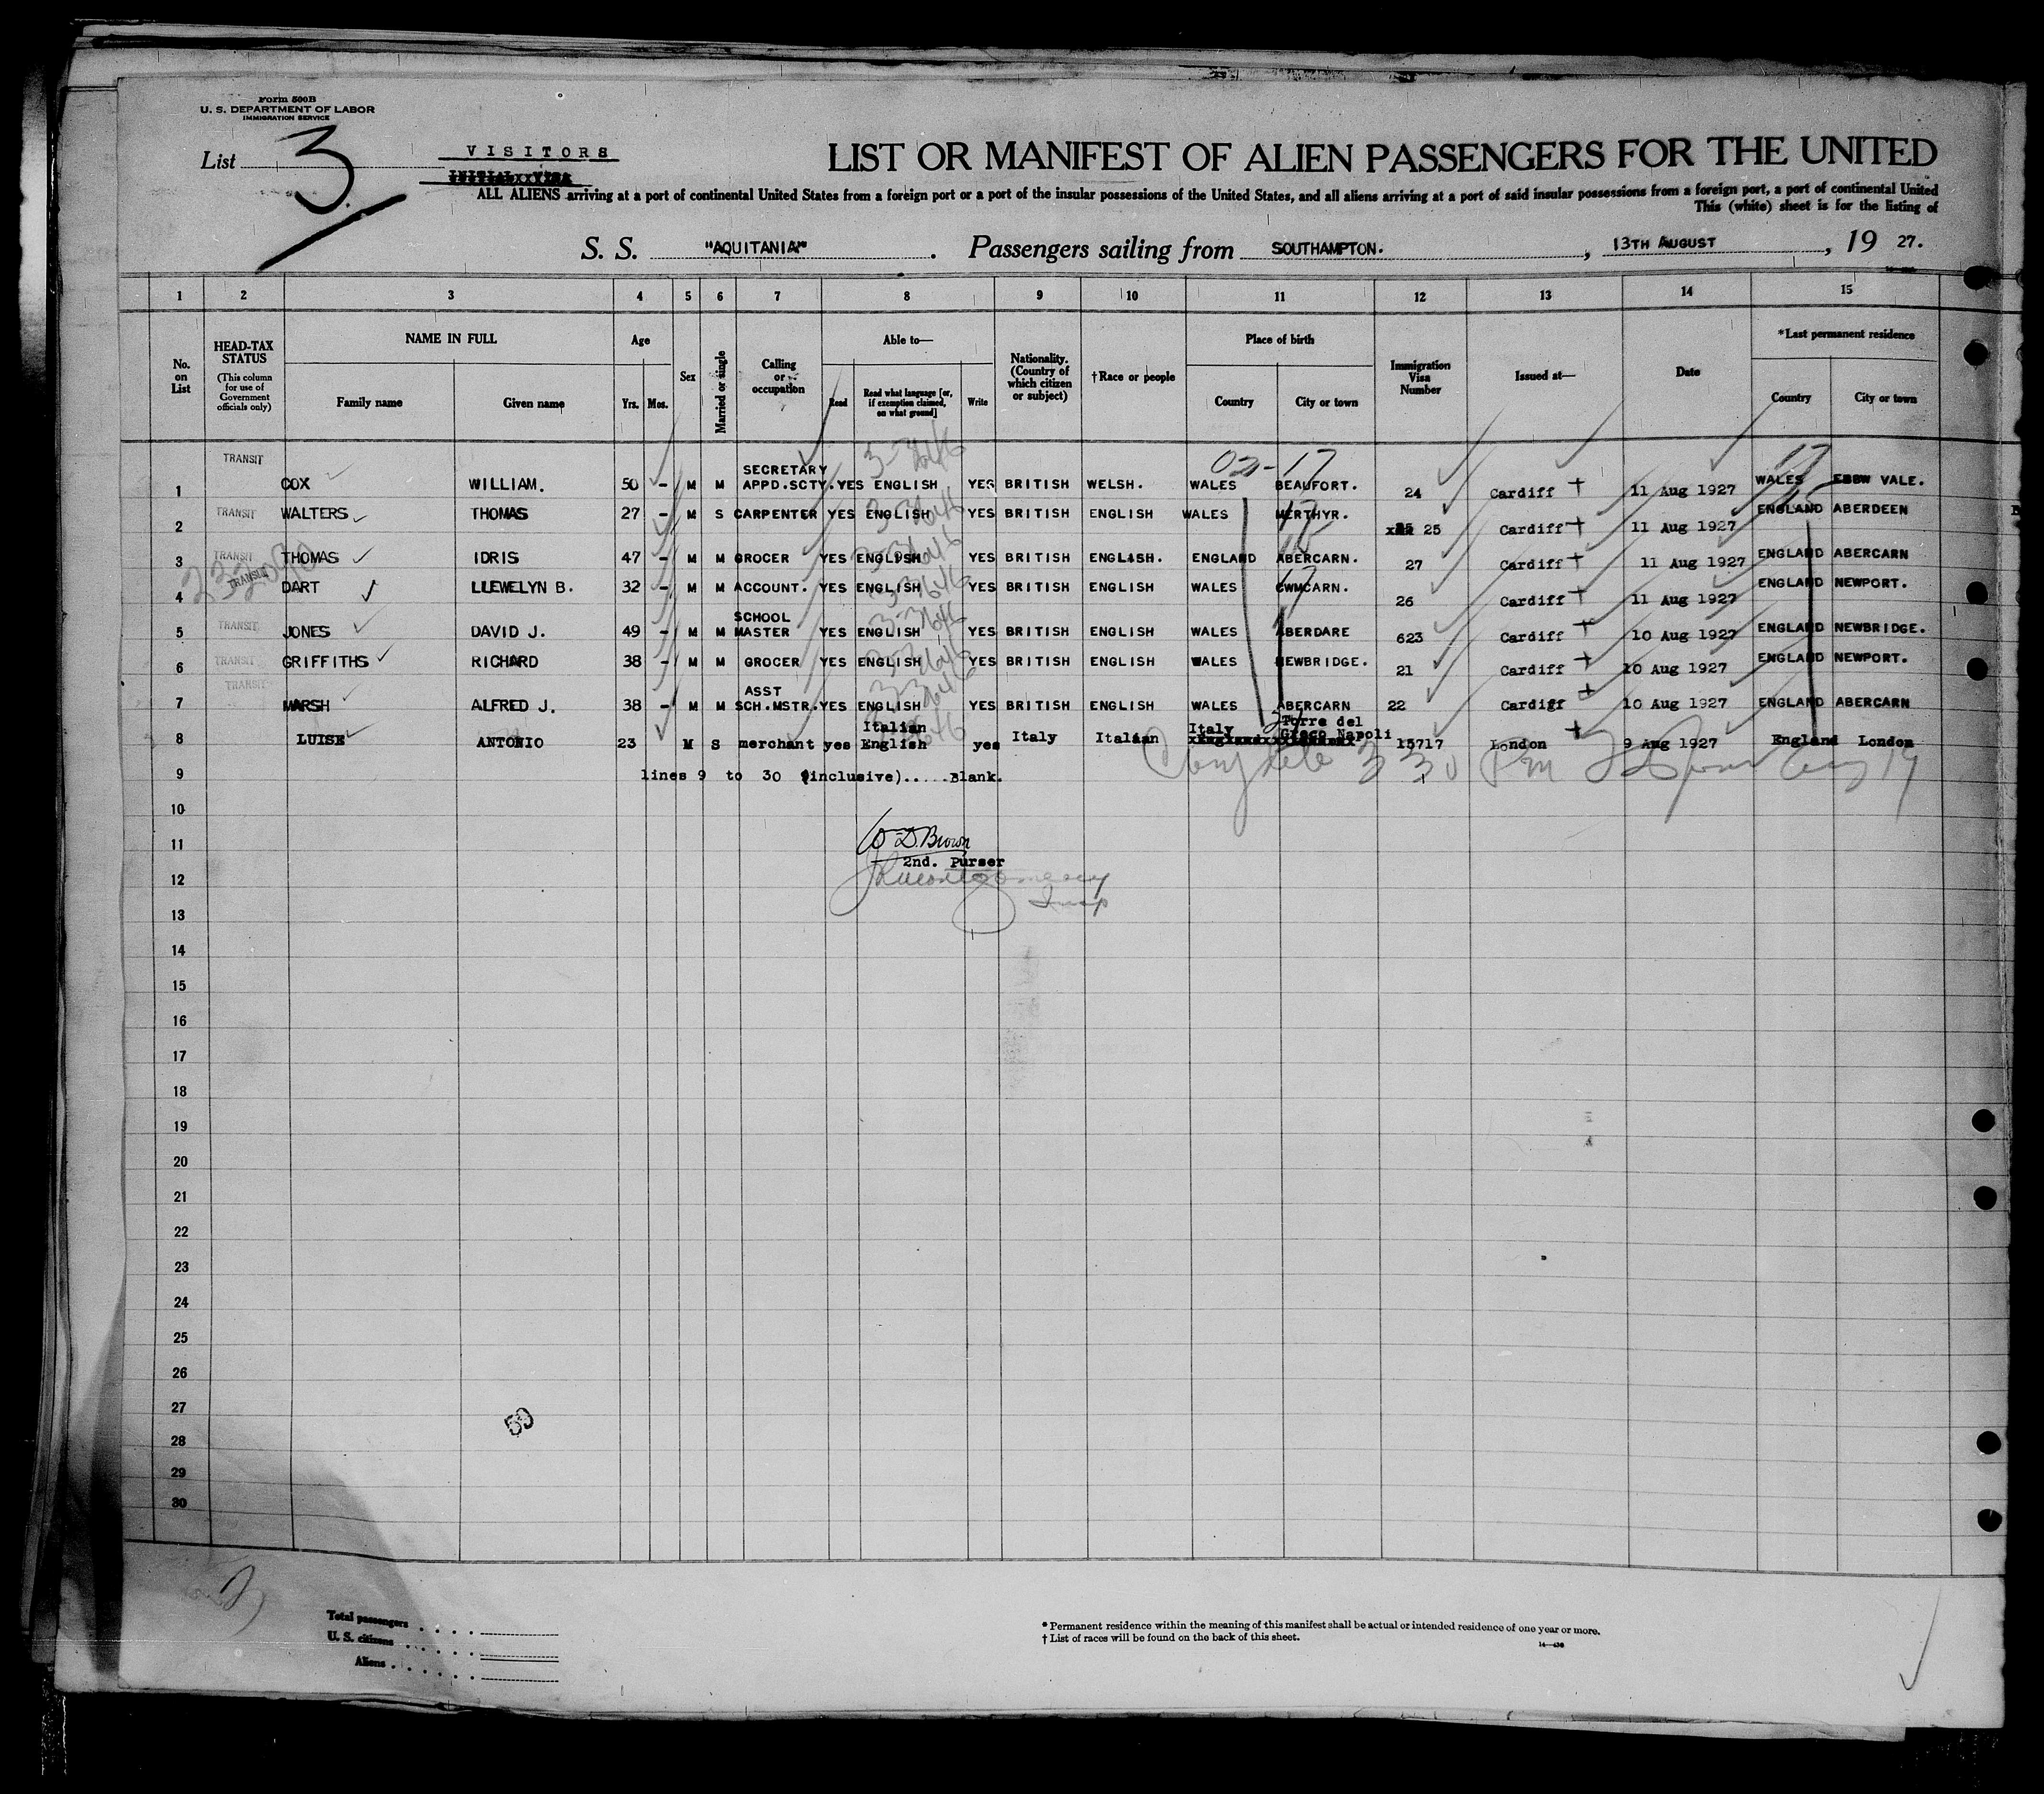 Form 500B
U. S. DEPARTMENT OF LABOR
IMMIGRATION SERVICE
List 3
VISITORS
LIST OR MANIFEST OF ALIEN PASSENGERS FOR THE UNITED
ALL ALIENS arriving at a port of continental United States from a foreign port or a port of the insular possessions of the United States, and all aliens arriving at a port of said insular possessions from a foreign port, a port of continental United
This (white) sheet is for the listing of
S. S. "AQUITANIA" . Passengers sailing from SOUTHAMPTON. , 13TH AUGUST , 19 27.
1 2 3 4 5 6 7 8 9 10 11 12 13 14 15
No. on List
HEAD-TAX STATUS (This column for use of Government officials only)
NAME IN FULL
Family name Given name
Age
Yrs. Mos.
Sex
Married or single
Calling or occupation
Able to—
Read Read what language [or, if exemption claimed, on what ground] Write
Nationality. (Country of which citizen or subject)
†Race or people
Place of birth
Country City or town
Immigration Visa Number
Issued at—
Date
*Last permanent residence
Country City or town
1 TRANSIT COX WILLIAM. 50 - M M SECRETARY APPD.SCTY. YES ENGLISH YES BRITISH WELSH. WALES BEAUFORT. 24 Cardiff 11 Aug 1927 WALES EBBW VALE.
2 TRANSIT WALTERS THOMAS 27 - M S CARPENTER YES ENGLISH YES BRITISH ENGLISH WALES MERTHYR. 25 Cardiff 11 Aug 1927 ENGLAND ABERDEEN
3 TRANSIT THOMAS IDRIS 47 - M M GROCER YES ENGLISH YES BRITISH ENGLISH. ENGLAND ABERCARN. 27 Cardiff 11 Aug 1927 ENGLAND ABERCARN
4 TRANSIT DART LLEWELYN B. 32 - M M ACCOUNT. YES ENGLISH YES BRITISH ENGLISH WALES CWMCARN. 26 Cardiff 11 Aug 1927 ENGLAND NEWPORT.
5 TRANSIT JONES DAVID J. 49 - M M SCHOOL MASTER YES ENGLISH YES BRITISH ENGLISH WALES ABERDARE 623 Cardiff 10 Aug 1927 ENGLAND NEWBRIDGE.
6 TRANSIT GRIFFITHS RICHARD 38 - M M GROCER YES ENGLISH YES BRITISH ENGLISH WALES NEWBRIDGE. 21 Cardiff 10 Aug 1927 ENGLAND NEWPORT.
7 TRANSIT MARSH ALFRED J. 38 - M M ASST SCH.MSTR. YES ENGLISH YES BRITISH ENGLISH WALES ABERCARN 22 Cardiff 10 Aug 1927 ENGLAND ABERCARN
8 LUISE ANTONIO 23 M S merchant yes Italian English yes Italy Italian Italy Torre del Greco Napoli 15717 London 9 Aug 1927 England London
9 lines 9 to 30 (inclusive).....Blank.
10
11 W D. Brown
2nd. Purser
12
Insp
13
14
15
16
17
18
19
20
21
22
23
24
25
26
27
59
28
29
30
Total passengers
U. S. citizens
Aliens
* Permanent residence within the meaning of this manifest shall be actual or intended residence of one year or more.
† List of races will be found on the back of this sheet.